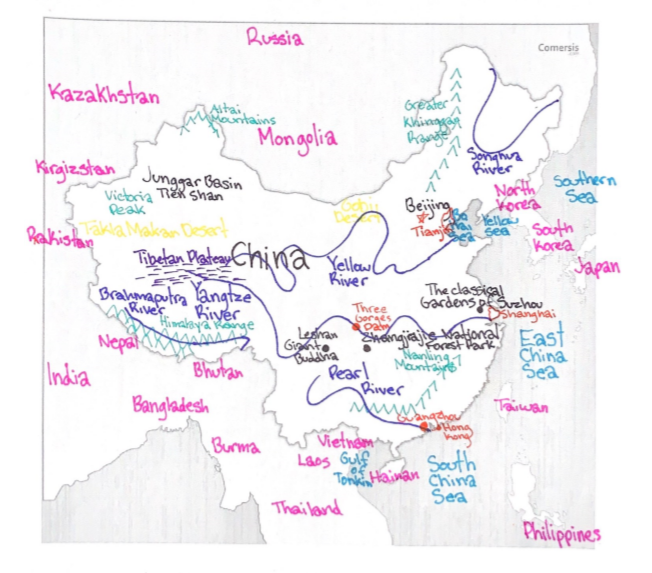 Russia
Comersis
Kazakhstan
Altai
Mountains
Greater
Khinggan
Range
Mongolia
Songhua
River
Kirgizstan
Junggar Basin
Tien Shan
Victoria
Peak
North
Korea
Southern
Sea
Beijing
Tianjin
Bo
Hai
Sea
Yellow
Sea
South
Korea
Gobi
Desert
Takla Makan Desert
Pakistan
Tibetan Plateau
China
Yellow
River
Japan
Brahmaputra
River
Yangtze
River
Himalaya Range
The classical
Gardens of Suzhou
Shanghai
Three
Gorges
Dam
Nepal
Leshan
Giant
Buddha
National
Forest Park
East
China
Sea
Nanling
Mountains
India
Bhutan
Pearl
River
Bangladesh
Taiwan
Guangzhou
Hong
Kong
Burma
Vietnam
Laos
Gulf
of
Tonkin
Hainan
South
China
Sea
Thailand
Philippines